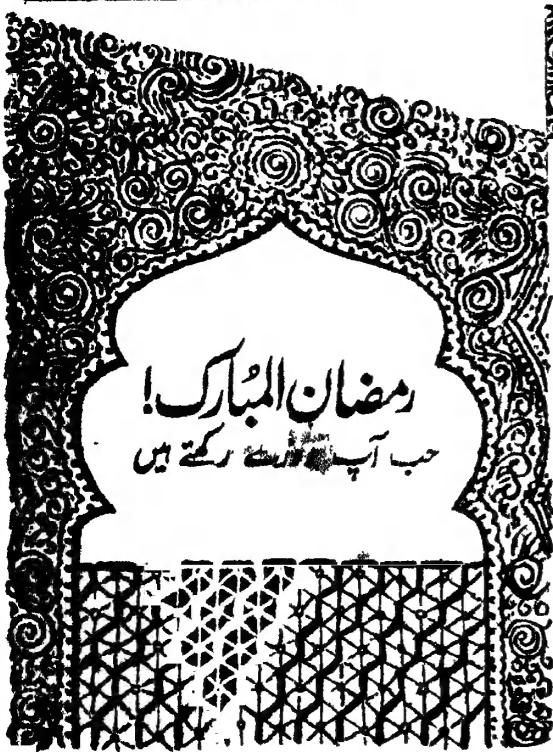 رمضان المُبارک!
جب آپ رکھتے ہیں